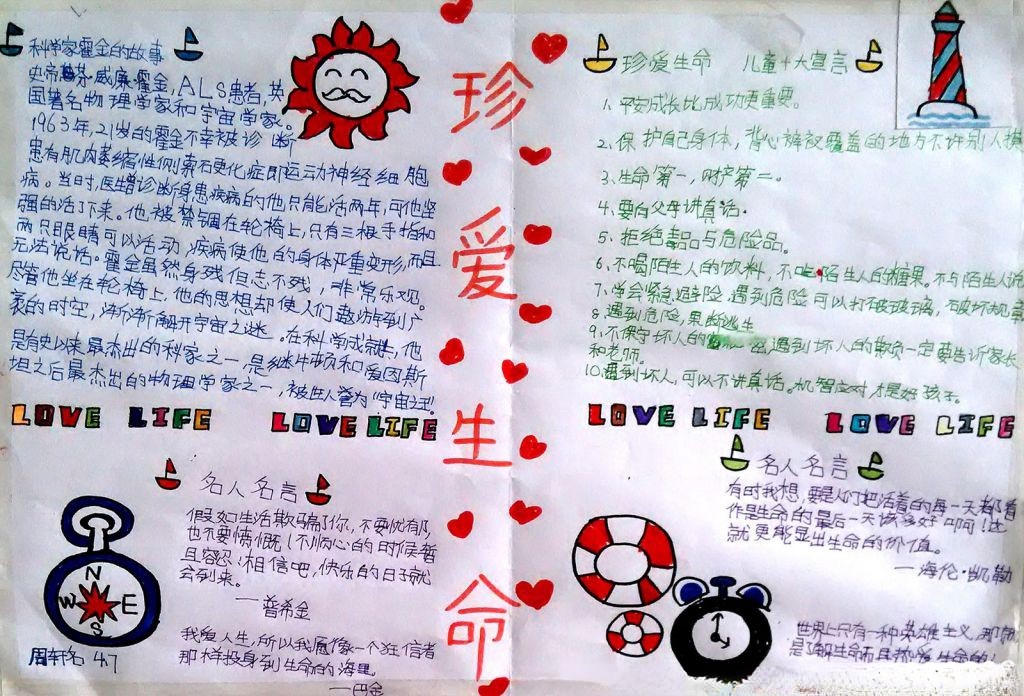 科学家霍金的故事
史帝芬·威廉·霍金,ALS患者,英
国著名物理学家和宇宙学家。
1963年,21岁的霍金不幸被诊断
患有肌肉萎缩性侧索硬化症即运动神经细胞
病。当时,医生曾诊断身患疾病的他只能活两年,可他坚
强的活了下来。他被禁锢在轮椅上,只有三根手指和
两只眼睛可以活动,疾病使他的身体严重变形,而且
无法说话。霍金虽然身残但志不残,非常乐观。
尽管他坐在轮椅上,他的思想却使人们遨游到广
袤的时空,渐渐解开宇宙之谜。在科学成就,他
是有史以来最杰出的科家之一,是继牛顿和爱因斯
坦之后最杰出的物理学家之一,被世人誉为“宇宙之王”。
LOVE LIFE LOVE LIFE
名人名言
假如生活欺骗了你,不要忧郁,
也不要愤慨!不顺心的时候暂
且容忍:相信吧,快乐的日子就
会到来。
——普希金
我爱人生,所以我愿像一个狂信者
那样投身到生命的海里。
——巴金
N
W E
S
周轩名 47
珍爱生命
珍爱生命 儿童十大宣言
1、平安成长比成功更重要。
2、保护自己身体,背心裤衩覆盖的地方不许别人摸
3、生命第一,财产第二。
4、要向父母讲真话。
5、拒绝毒品与危险品。
6、不喝陌生人的饮料,不吃陌生人的糖果。不与陌生人说
7、学会紧急避险,遇到危险可以打破玻璃,破坏规章
8、遇到危险,果断逃生
9、不保守坏人的 遇到坏人的欺负一定要告诉家长
和老师。
10、遇到坏人,可以不讲真话。机智应对,才是好孩子。
LOVE LIFE LOVE LIFE
名人名言
有时我想,要是人们把活着的每一天都看
作是生命的最后一天该多好啊!这
就更能显出生命的价值。
——海伦·凯勒
世界上只有一种英雄主义,那就
是了解生命而且热爱生命的